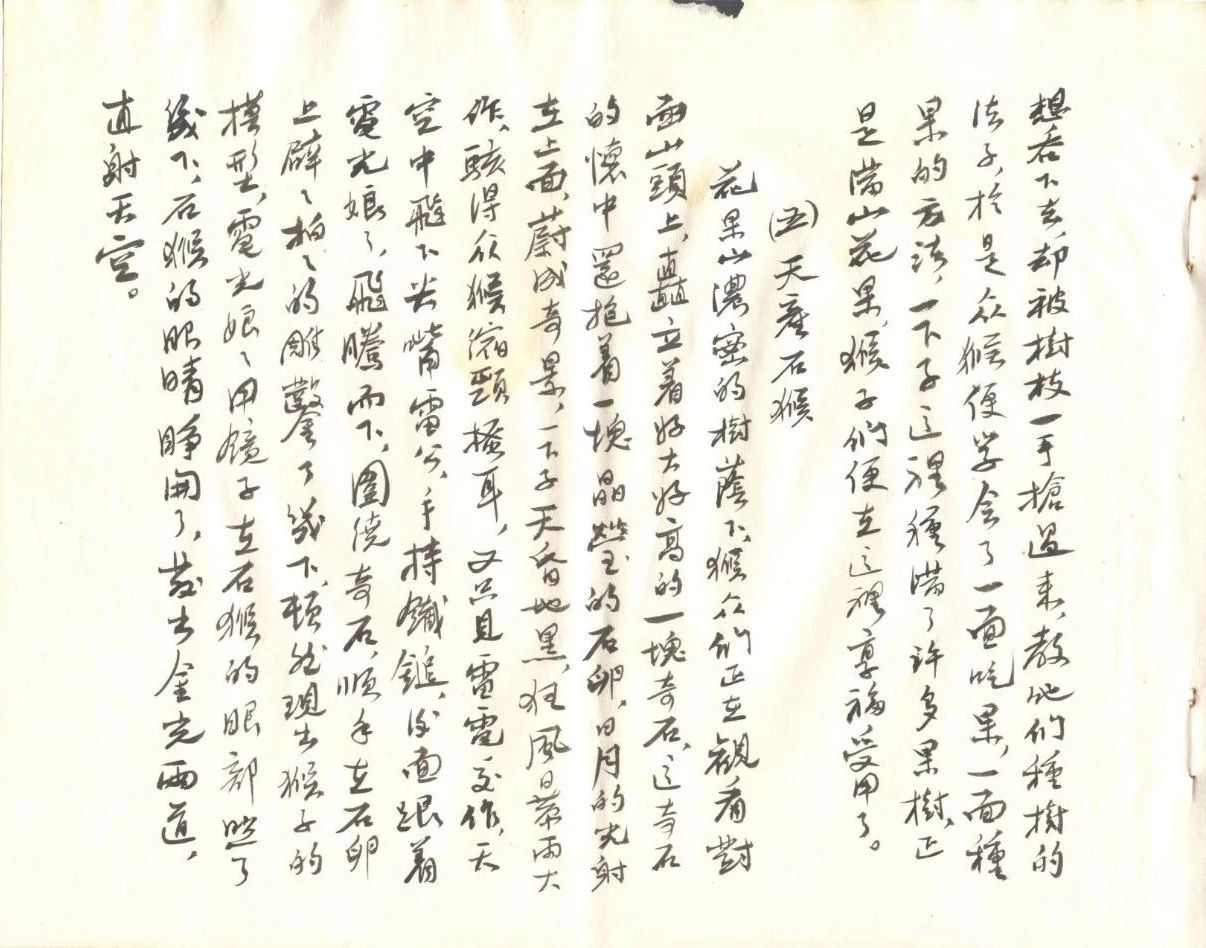 想吞下去，却被樹枝一手搶過来，教他们種樹的
法子，於是众猴便学会了一面吃果，一面種
果的方法，一下子這裡種滿了許多果樹，正
是滿山花果，猴子們便在這裡享福受用了。
(五)天產石猴
花果山濃密的樹蔭下，猴众們正在觀看對
面山頭上，矗立着好大好高的一塊奇石，這奇石
的懷中還抱着一塊晶瑩的石卵，日月的光射
在上面，蔚成奇景，一下子天昏地黑，狂風暴雨大
作，駭得众猴縮頸搔耳，又只見雷電交作，天
空中飛下尖嘴雷公，手持鐵鎚，後面跟着
電光娘々，飛騰而下，圍繞奇石，順手在石卵
上劈々拍々的雕鑿了幾下，頓然現出猴子的
模型，電光娘々用鏡子在石猴的眼部照了
幾下，石猴的眼睛睜開了，發出金光兩道，
直射天空。